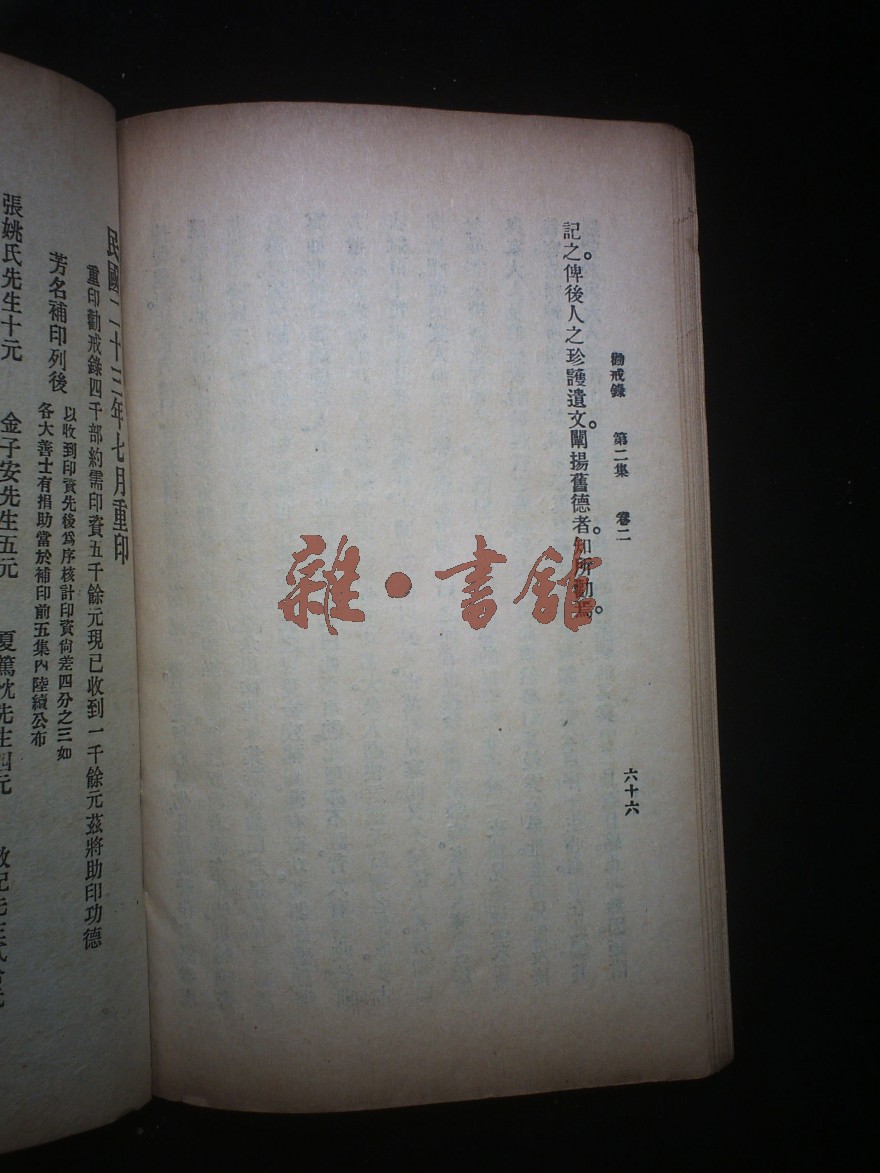 勸戒錄 第二集 卷二
六十六
記之。俾後人之珍護遺文。闡揚舊德者。知所勸焉。
雜·書館
民國二十三年七月重印
重印勸戒錄四千部約需印資五千餘元現已收到一千餘元茲將助印功德
芳名補印列後
以收到印資先後爲序核計印資尙差四分之三如
各大善士有捐助當於補印前五集內陸續公布
張姚氏先生十元 金子安先生五元 夏篤忱先生四元